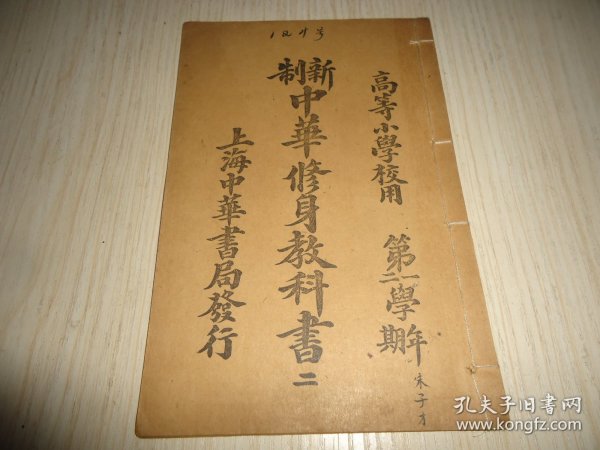 高等小學校用 第一學年第二學期
新制中華修身教科書 二
上海中華書局發行
孔夫子旧书网
kongfz.com